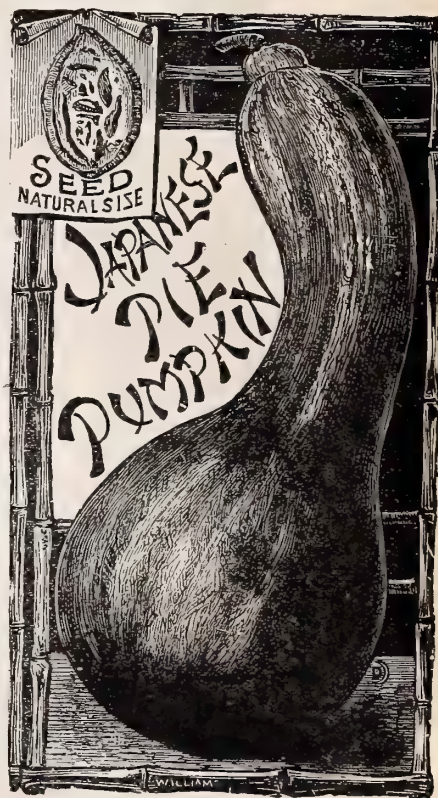 SEED
NATURAL SIZE
JAPANESE
PIE
PUMPKIN
WILLIAM